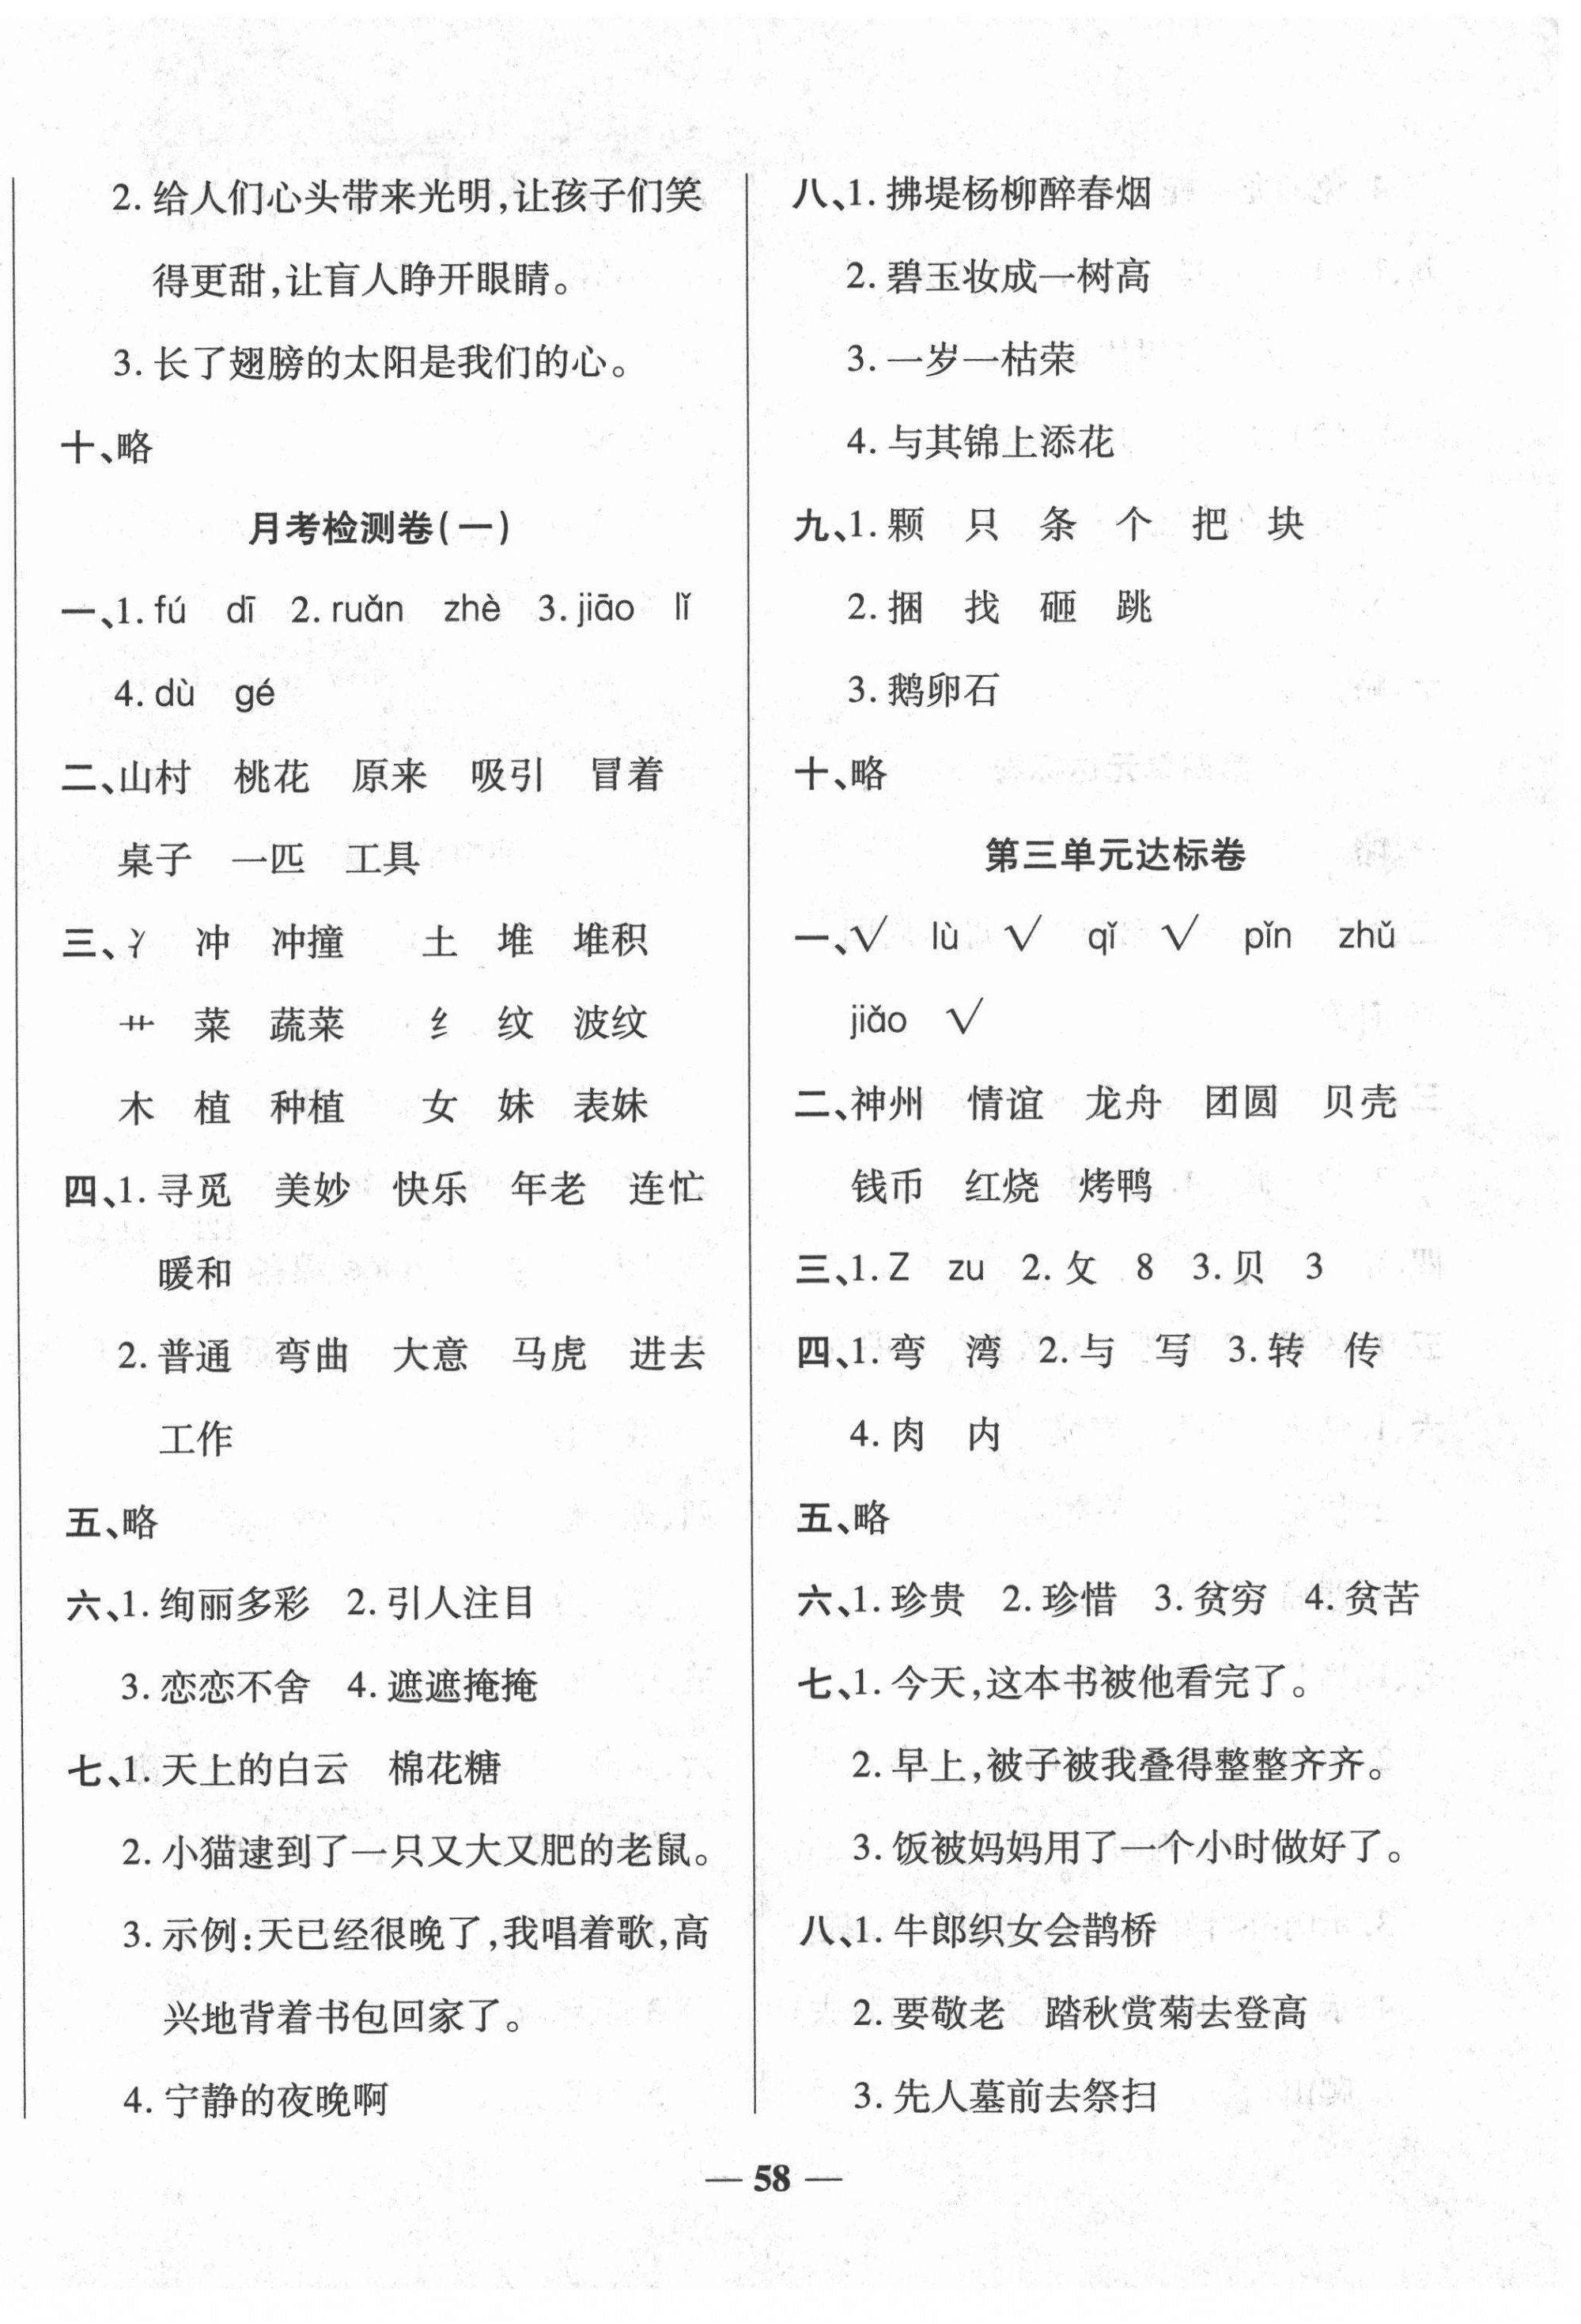 2. 给人们心头带来光明,让孩子们笑
得更甜,让盲人睁开眼睛。
3. 长了翅膀的太阳是我们的心。
十、略
月考检测卷(一)
一、1. fú dī 2. ruǎn zhè 3. jiāo lǐ
4. dù gé
二、山村 桃花 原来 吸引 冒着
桌子 一匹 工具
三、冫 冲 冲撞 土 堆 堆积
艹 菜 蔬菜 纟 纹 波纹
木 植 种植 女 妹 表妹
四、1. 寻觅 美妙 快乐 年老 连忙
暖和
2. 普通 弯曲 大意 马虎 进去
工作
五、略
六、1. 绚丽多彩 2. 引人注目
3. 恋恋不舍 4. 遮遮掩掩
七、1. 天上的白云 棉花糖
2. 小猫逮到了一只又大又肥的老鼠。
3. 示例:天已经很晚了,我唱着歌,高
兴地背着书包回家了。
4. 宁静的夜晚啊
八、1. 拂堤杨柳醉春烟
2. 碧玉妆成一树高
3. 一岁一枯荣
4. 与其锦上添花
九、1. 颗 只 条 个 把 块
2. 捆 找 砸 跳
3. 鹅卵石
十、略
第三单元达标卷
一、√ lù √ qǐ √ pǐn zhǔ
jiǎo √
二、神州 情谊 龙舟 团圆 贝壳
钱币 红烧 烤鸭
三、1. Z zu 2. 攵 8 3. 贝 3
四、1. 弯 湾 2. 与 写 3. 转 传
4. 肉 内
五、略
六、1. 珍贵 2. 珍惜 3. 贫穷 4. 贫苦
七、1. 今天,这本书被他看完了。
2. 早上,被子被我叠得整整齐齐。
3. 饭被妈妈用了一个小时做好了。
八、1. 牛郎织女会鹊桥
2. 要敬老 踏秋赏菊去登高
3. 先人墓前去祭扫
— 58 —